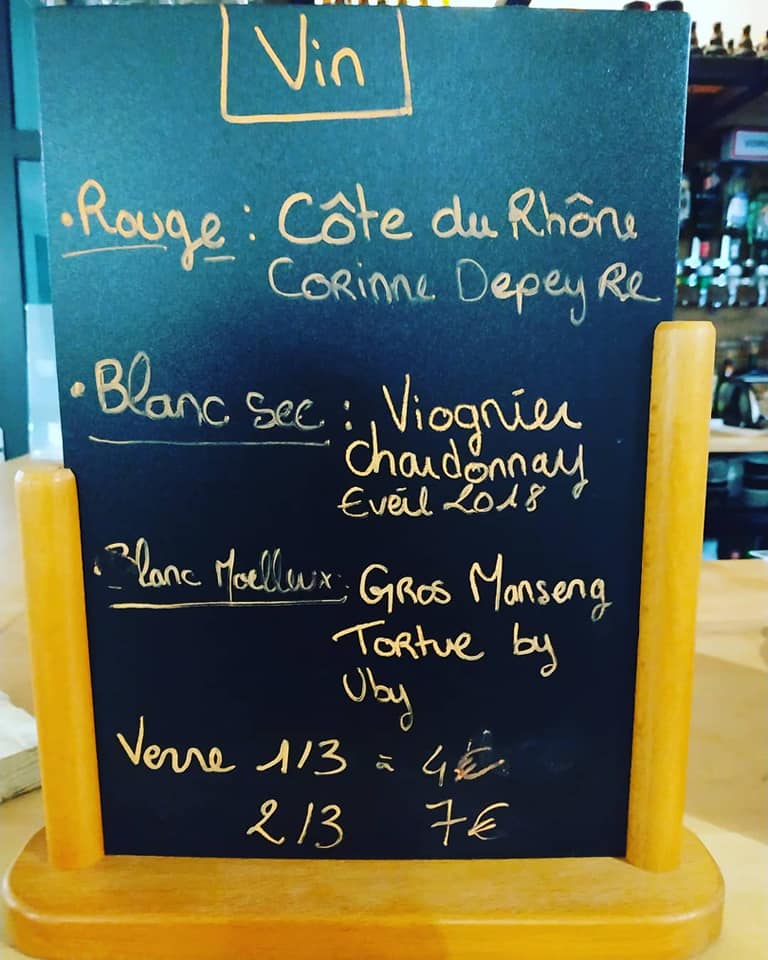 Vin
• Rouge : Côte du Rhône
Corinne Depeyre
• Blanc sec : Viognier
chardonnay
Eveil 2018
• Blanc Moelleux : Gros Manseng
Tortue by
Uby
Verre 1/3 à 4€
2/3 7€